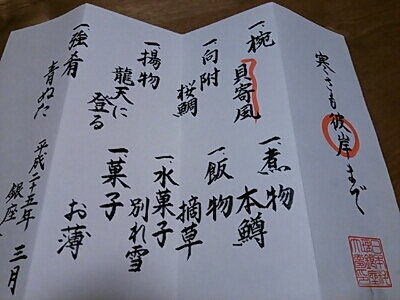 寒さも彼岸まで
一、椀
貝寄風
一、向附
桜鯛
一、揚物
龍天に
登る
一、強肴
青ぬた
一、煮物
本鱒
一、飯物
摘草
一、水菓子
別れ雪
一、菓子
お薄
平成二十五年
三月
銀座